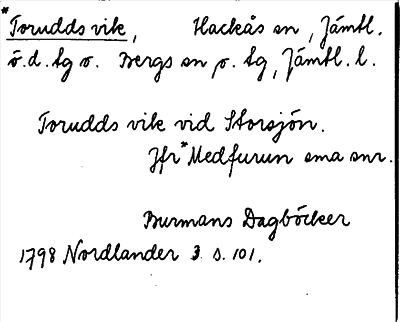 *Torudds vik, Hackås sn, Jämtl.
ö.d. tg o. Bergs sn s. tg, Jämtl. l.
Torudds vik vid Storsjön.
Jfr *Medfurun sma snr.
Burmans Dagböcker
1798 Nordlander 3 s. 101.